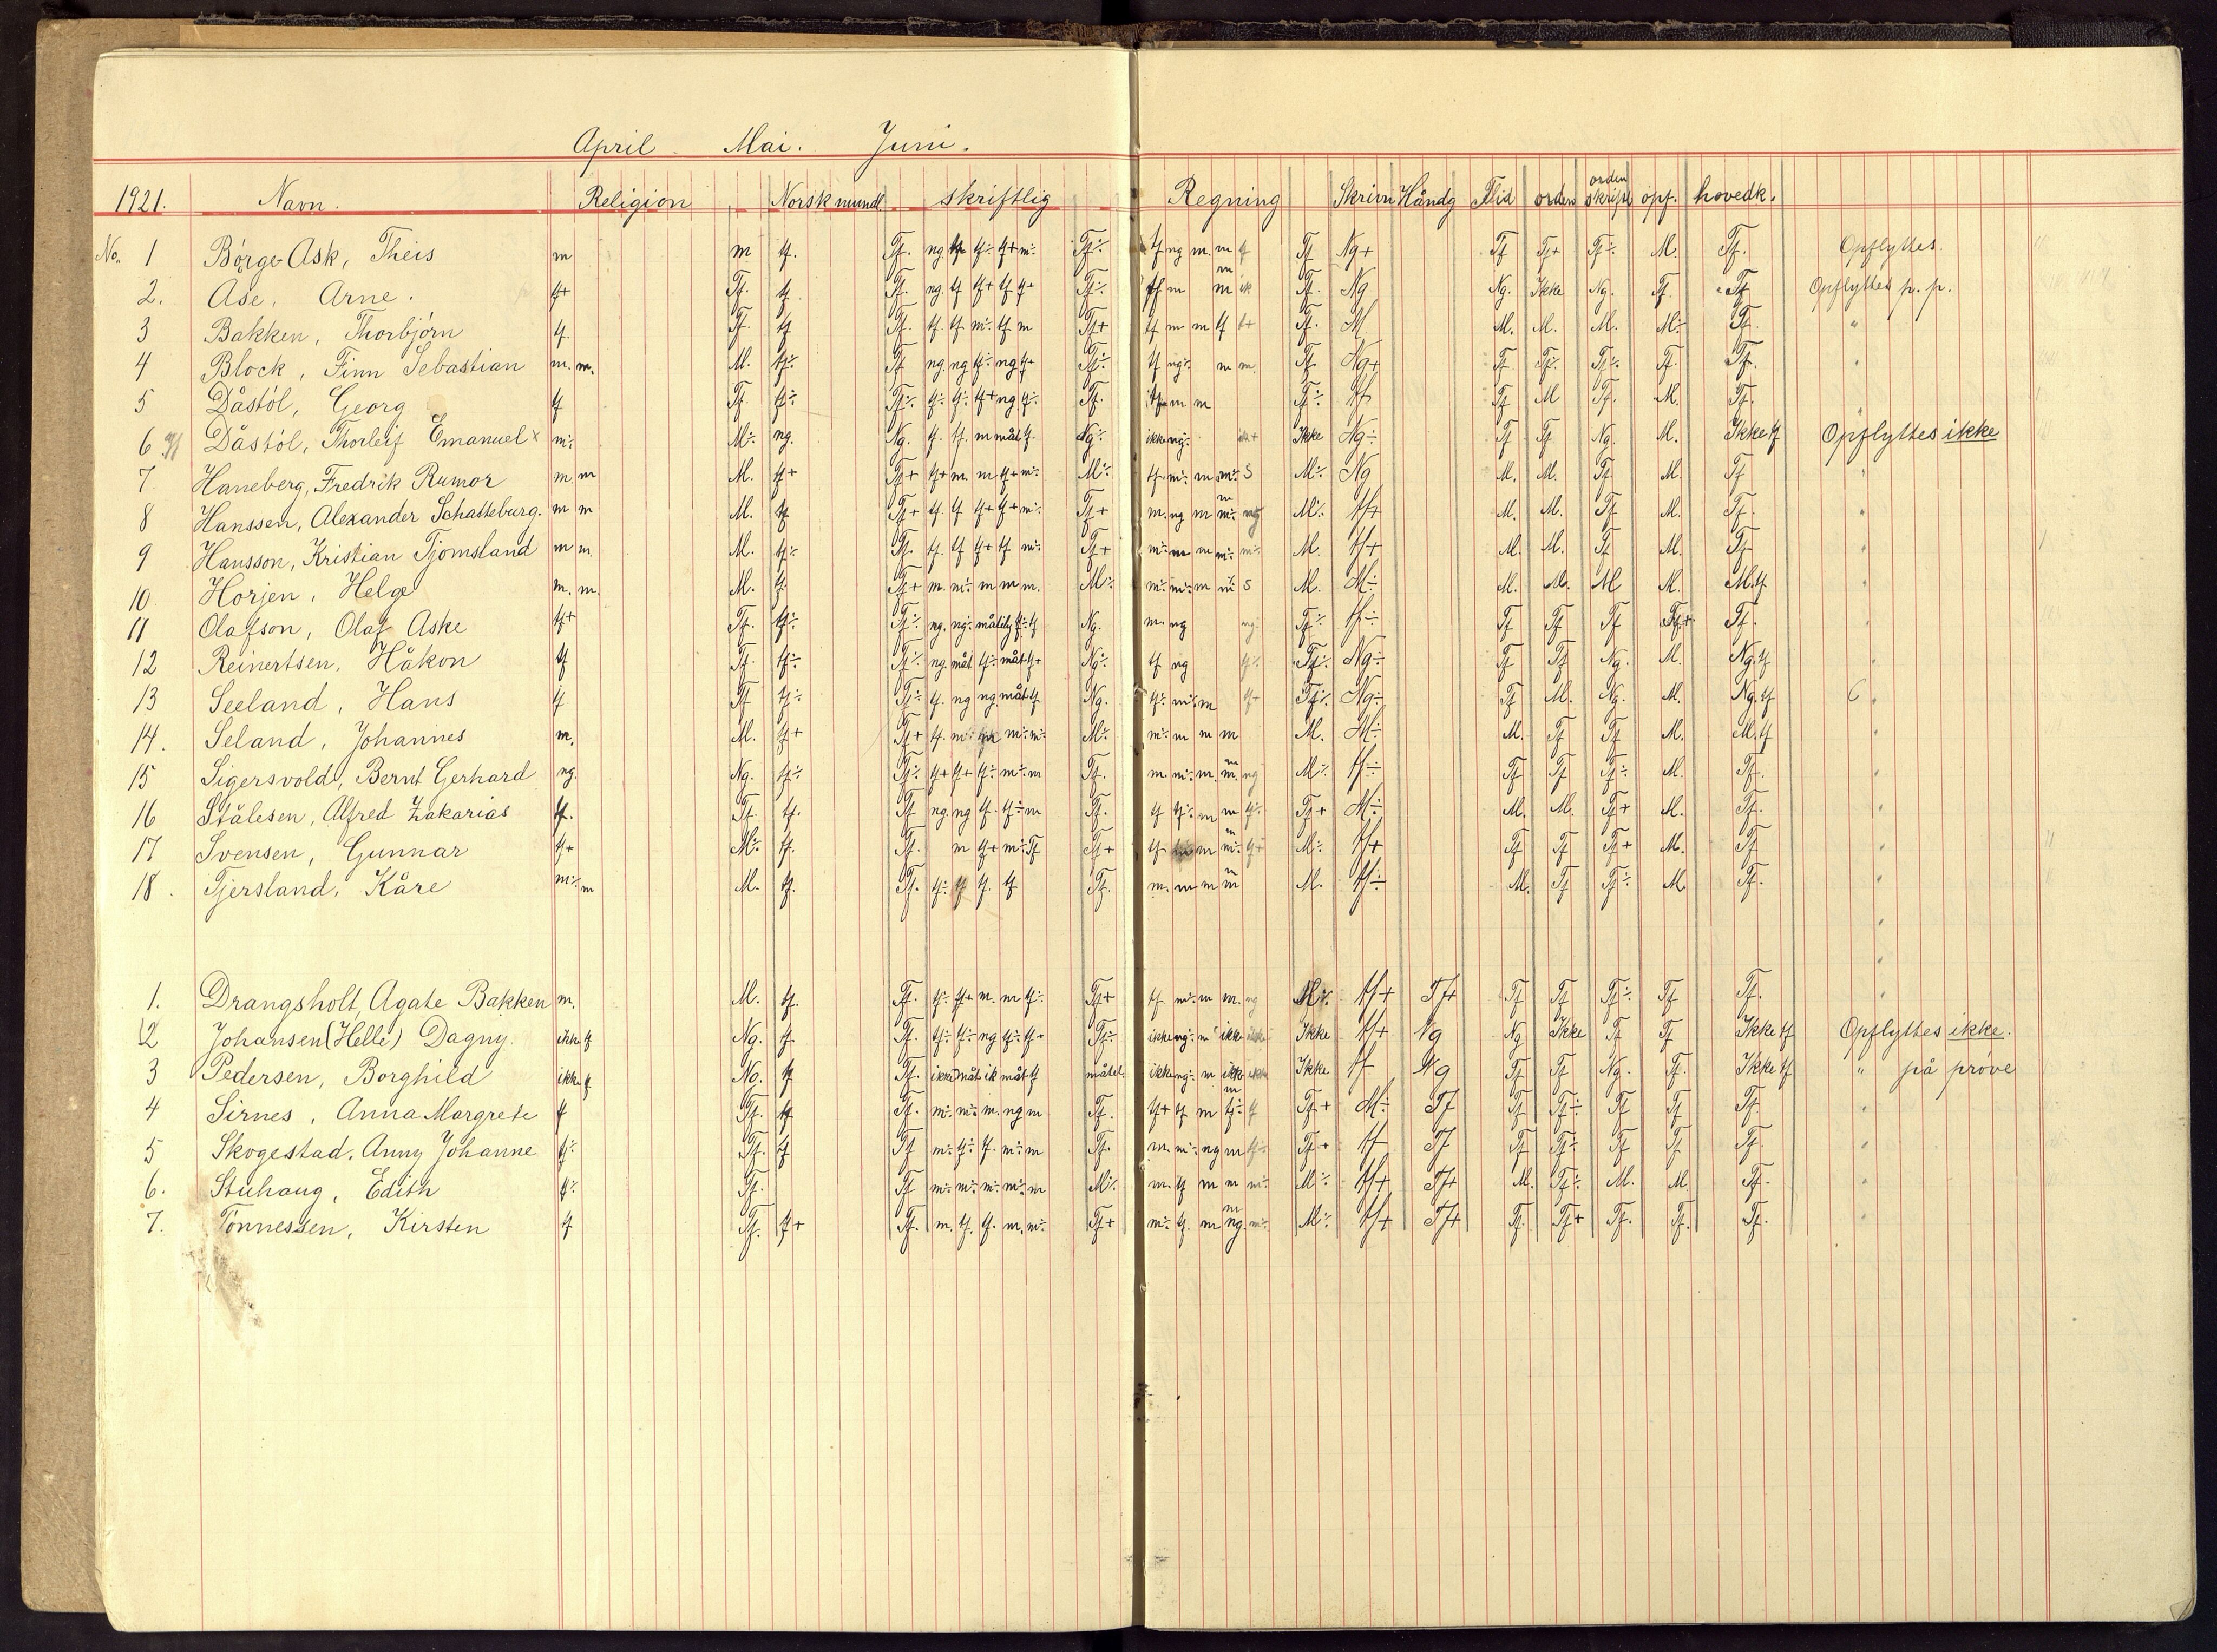 April Mai. Juni.
1921. Navn. Religion Norsk mundl. skriftlig Regning Skrivn Håndg Flid orden orden skriftl opf. hovedk.
No. 1 Børge Ask, Theis m m tf. Tf. ng tf tf÷ tf+ m÷ Tf÷ tf ng m. m tf Tf Ng+ Tf Tf+ Tf÷ M. Tf. Opflyttes.
2. Åse, Arne. tf+ Tf. tf Tf. ng. tf tf+ tf tf+ Tf÷ tf m m ik Tf. Ng Ng. Ikke Ng. Tf. Tf Opflyttes p. p.
3 Bakken, Thorbjørn tf. Tf. tf Tf. tf. tf. m÷ tf m Tf+ tf m m tf t+ Tf. M M. M. M. M÷ Tf. "
4 Block, Finn Sebastian m. m. M. tf÷ Tf ng ng tf÷ ng tf+ Tf÷ tf ng÷ m m. Tf. Ng+ Tf Tf÷ Tf÷ Tf. Tf. "
5 Dåstøl, Georg tf Tf. tf÷ Tf÷ tf÷ tf÷ tf+ ng tf÷ Tf. m m Tf÷ tf Tf M Tf. M. Tf.
6 Dåstøl, Thorleif Emanuel x m÷ M÷ ng. Ng. tf. tf. m måt tf. Ng÷ ikke ng÷ Ikke Ng÷ Tf Tf Ng. M. Ikke tf Opflyttes ikke
7. Haneberg, Fredrik Rumor m. m M. tf+ Tf+ tf+ m. m tf+ m÷ M÷ tf. m÷ m m÷ S M÷ Ng M. M. Tf M. Tf "
8 Hanssen, Alexander Schatteburg. m m M. tf Tf+ tf. tf tf+ tf+ m÷ Tf+ m. ng m m÷ ng M÷ tf+ M. M. Tf M. Tf. "
9 Hansson, Kristian Tjomsland m m M. tf÷ Tf. tf. tf tf+ tf m÷ Tf+ m÷ m m m÷ m÷ M. tf+ M. M. Tf M. Tf "
10 Horjen, Helge m. m. M. tf. Tf+ m. m÷ m m m. M÷ m÷ m÷ m m÷ S M. M÷ M. M. M M. M.tf "
11 Olafson, Olaf Aske tf+ Tf. tf÷ Tf÷ ng. ng÷ tf÷ tf Ng. m. ng ng. Tf÷ tf÷ Tf Tf Tf Tf+ Tf. "
12 Reinertsen, Håkon tf Tf. tf÷ Tf÷ ng. måt tf÷ måt tf+ Ng÷ tf ng tf÷ Tf÷ Ng÷ Tf Tf Ng. M. Ng.tf "
13 Seeland, Hans tf. Tf tf÷ Tf÷ tf. ng ng. måt tf Ng. tf÷ m÷ m tf+ Tf÷ Ng÷ Tf M. Ng. M. Ng.tf "
14. Seland, Johannes m. M. tf+ Tf+ tf. m÷ m÷ m÷ M÷ m÷ m m m M. M÷ M. Tf Tf M. M.tf "
15 Sigersvold, Bernt Gerhard ng. Ng. tf÷ Tf÷ tf+ tf+ tf÷ m÷ m Tf. m. m÷ m. m. ng M÷ tf÷ Tf Tf Tf÷ M. Tf. "
16 Stålesen, Alfred Zakarias tf. Tf. tf. Tf ng ng tf. tf÷ m Tf. tf tf÷ m m tf÷ Tf+ M÷ M. M. Tf+ M. Tf. "
17 Svensen, Gunnar tf+ M÷ tf. Tf. m tf+ m÷ Tf Tf+ tf. m m÷ tf+ M÷ tf+ Tf Tf Tf+ M. Tf "
18. Tjersland, Kåre m÷ m M. tf. Tf. tf÷ tf tf. tf Tf. m. m m m M. tf÷ M. Tf Tf÷ M. Tf. "
1. Drangsholt, Agate Bakken m. M. tf. Tf. tf÷ tf+ m. m tf÷ Tf+ tf m÷ m m. ng M÷ tf+ Tf+ Tf Tf Tf÷ Tf Tf.
2 Johansen (Helle) Dagny ikke tf Ng. tf. Tf. tf÷ tf÷ ng tf÷ tf+ Tf÷ ikke ng÷ m ikke ikke Ikke tf+ Ng Ng Ikke Tf Tf Ikke tf Opflyttes ikke.
3 Pedersen, Borghild ikke tf No. tf Tf. ikke måt ik måt tf måtel. ikke ng÷ m ikke ikke Ikke tf Ng Tf Tf Ng. Tf. Ikke tf " på prøve
4 Sirnes, Anna Margrete tf Tf. tf Tf. m÷ m÷ m. ng m Tf. tf+ tf m tf÷ tf Tf+ M÷ Tf Tf Tf÷ Tf Tf Tf. "
5 Skogestad, Anny Johanne tf÷ Tf. tf Tf m÷ tf÷ tf. m÷ m Tf. m. m÷ ng m tf÷ Tf+ tf Tf Tf Tf÷ Tf Tf Tf. "
6. Stuhaug, Edith tf÷ Tf. Tf m÷ m÷ m÷ m÷ m M÷ m. tf m m m÷ M÷ tf+ Tf+ M. Tf÷ M. M. Tf. "
7. Tønnessen, Kirsten tf Tf. tf+ Tf. m. tf. tf. m. m÷ Tf+ m÷ tf. m ng m÷ M÷ tf+ Tf+ Tf. Tf+ Tf. Tf. Tf. "